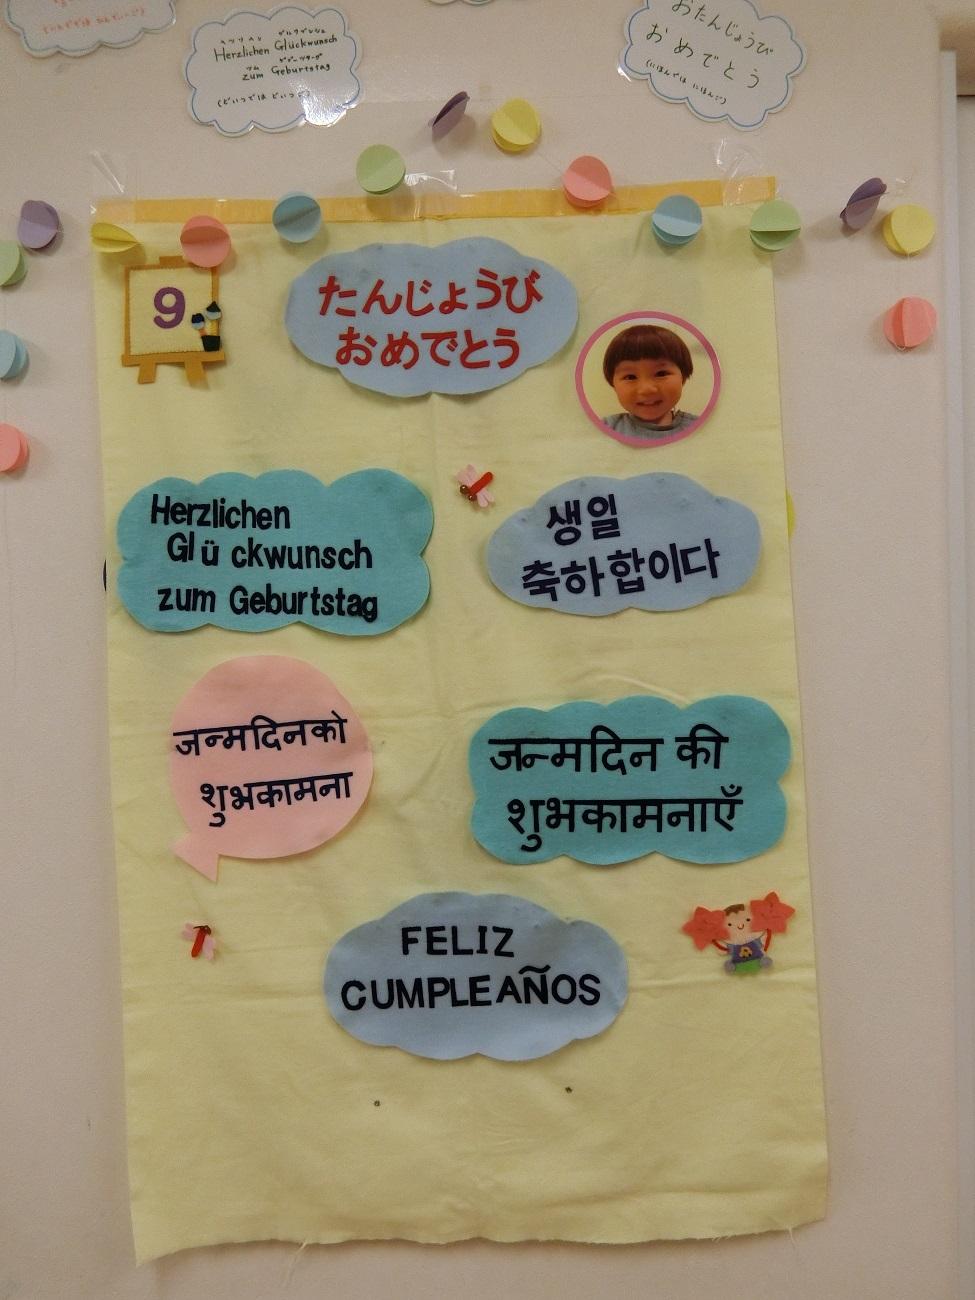 ヘツリヘン グルクブンシュ
Herzlichen Glückwunsch
ツム ゲブーツターグ
zum Geburtstag
(どいつでは どいつご)
おたんじょうび
おめでとう
(にほんでは にほんご)
9
たんじょうび
おめでとう
Herzlichen
Glückwunsch
zum Geburtstag
생일
축하합이다
जन्मदिनको
शुभकामना
जन्मदिन की
शुभकामनाएँ
FELIZ
CUMPLEAÑOS